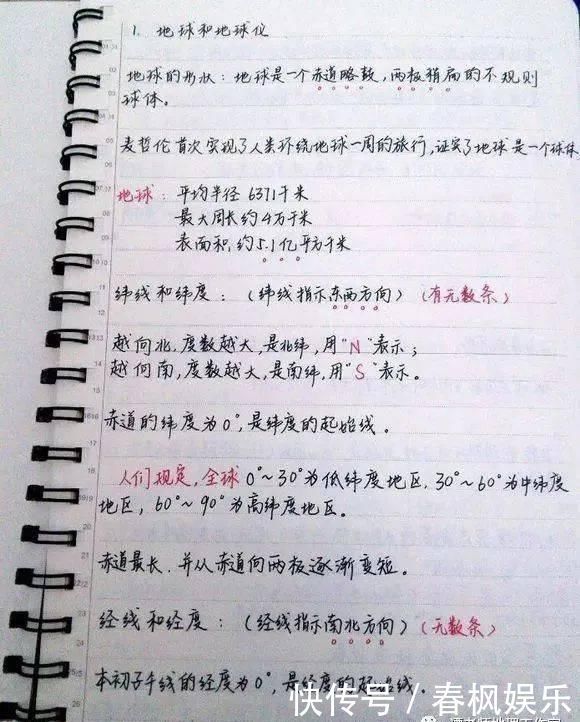 1. 地球和地球仪
地球的形状：地球是一个赤道略鼓，两极稍扁的不规则
球体。
麦哲伦首次实现了人类环绕地球一周的旅行，证实了地球是一个球体
地球：平均半径 6371千米
最大周长约4万千米
表面积，约5.1亿平方千米
纬线和纬度：（纬线指示东西方向）（有无数条）
越向北，度数越大，是北纬，用"N"表示；
越向南，度数越大，是南纬，用"S"表示。
赤道的纬度为0°，是纬度的起始线。
人们规定，全球0°~30°为低纬度地区，30°~60°为中纬度
地区，60°~90°为高纬度地区。
赤道最长，并从赤道向两极逐渐变短。
经线和经度：（经线指示南北方向）（无数条）
本初子午线的经度为0°，是经度的起始线。
快传号／春枫娱乐